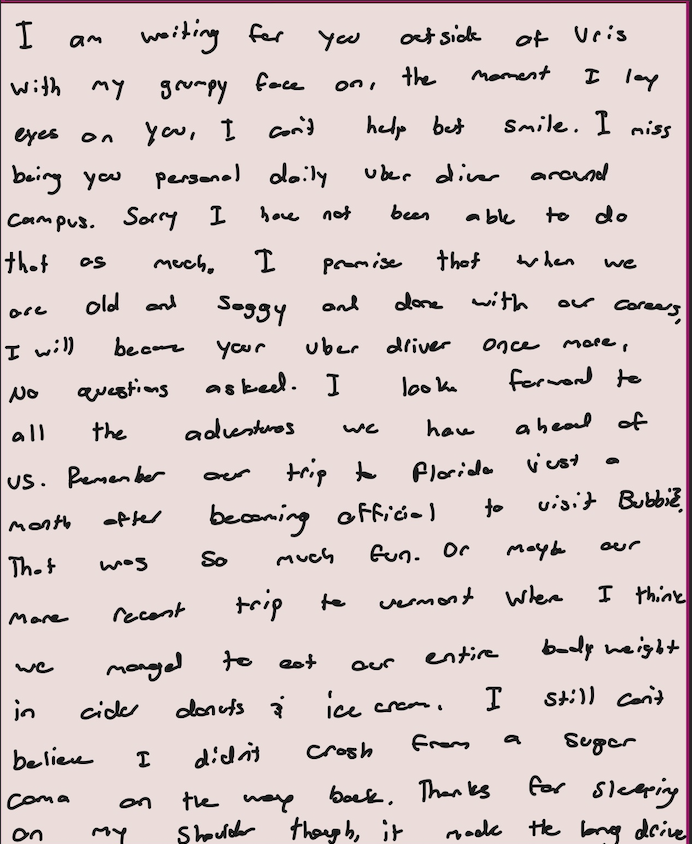 I am waiting for you outside of Uris
with my grumpy face on, the moment I lay
eyes on you, I can't help but smile. I miss
being you personal daily uber diver around
campus. Sorry I have not been able to do
that as much. I promise that when we
are old and saggy and done with our careers,
I will become your uber driver once more,
No questions asked. I look forward to
all the adventures we have ahead of
us. Remember our trip to Florida just a
month after becoming official to visit Bubbie?
That was so much fun. Or maybe our
more recent trip to vermont where I think
we manged to eat our entire body weight
in cider donuts & ice cream. I still can't
believe I didn't crash from a sugar
coma on the way back. Thanks for sleeping
on my shoulder though, it made the long drive